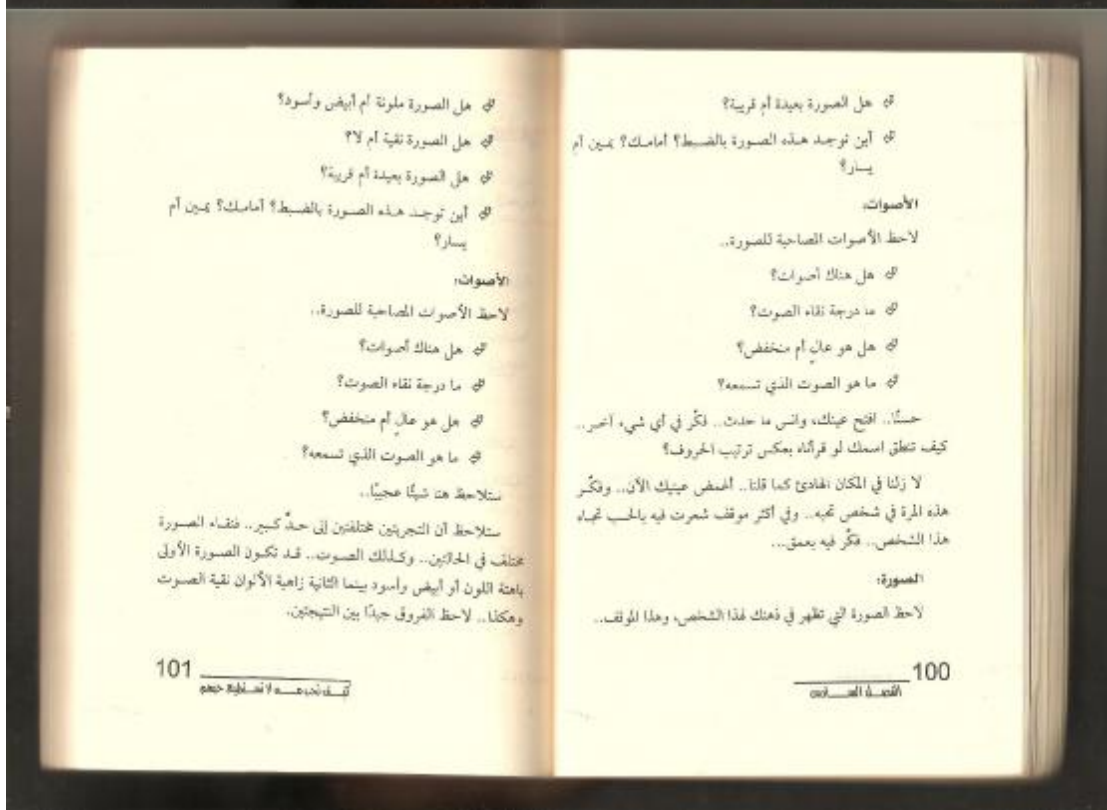 هل الصورة بعيدة أم قريبة؟
أين توجد هذه الصورة بالضبط؟ أمامك؟ يمين أم
يسار؟
الأصوات:
لاحظ الأصوات المصاحبة للصورة..
هل هناك أصوات؟
ما درجة نقاء الصوت؟
هل هو عالٍ أم منخفض؟
ما هو الصوت الذي تسمعه؟
حسنًا.. افتح عينك، وانس ما حدث.. فكّر في أي شيء آخر..
كيف تنطق اسمك لو قرأناه بعكس ترتيب الحروف؟
لا زلنا في المكان الهادئ كما قلنا.. أغمض عينيك الآن.. وفكّر
هذه المرة في شخص تحبه.. وفي أكثر موقف شعرت فيه بالحب تجاه
هذا الشخص.. فكّر فيه بعمق...
الصورة:
لاحظ الصورة التي تظهر في ذهنك لهذا الشخص، وهذا الموقف..
100
الفصل السادس
هل الصورة ملونة أم أبيض وأسود؟
هل الصورة نقية أم لا؟
هل الصورة بعيدة أم قريبة؟
أين توجد هذه الصورة بالضبط؟ أمامك؟ يمين أم
يسار؟
الأصوات:
لاحظ الأصوات المصاحبة للصورة..
هل هناك أصوات؟
ما درجة نقاء الصوت؟
هل هو عالٍ أم منخفض؟
ما هو الصوت الذي تسمعه؟
ستلاحظ هنا شيئًا عجيبًا..
ستلاحظ أن التجربتين مختلفتين إلى حدٍّ كبير.. فنقاء الصورة
مختلف في الحالتين.. وكذلك الصوت.. قد تكون الصورة الأولى
باهتة اللون أو أبيض وأسود بينما الثانية زاهية الألوان نقية الصوت
وهكذا.. لاحظ الفروق جيدًا بين النتيجتين.
101
كيف تحب من لا تستطيع حبهم